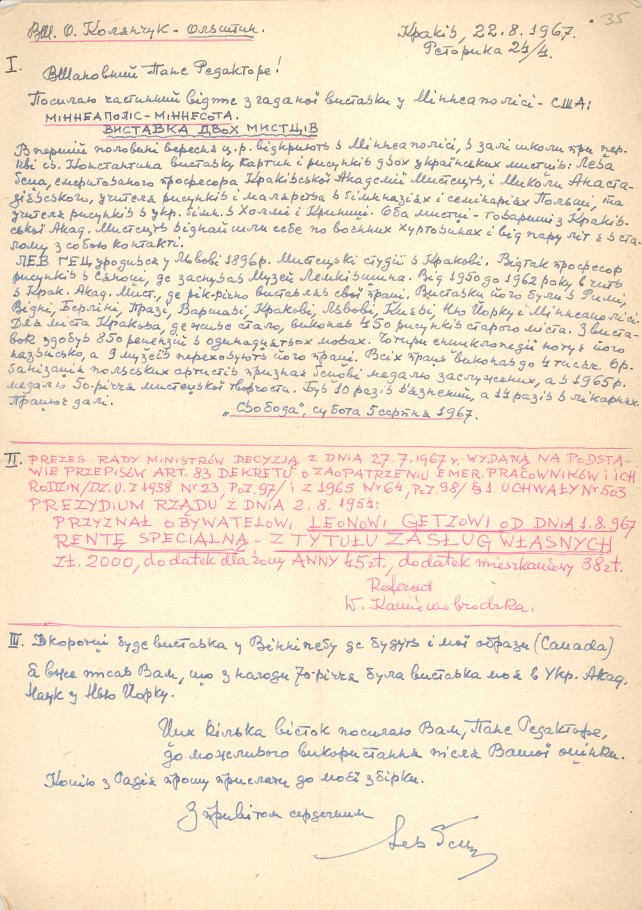 35
ВШ. О. Колянчук - Ольштин.
Краків, 22.8.1967.
Реторика 24/4.
I. ВШановний Пане Редакторе!
Посилаю частинний відтис згаданої виставки у Міннеаполісі - США:
МІННЕАПОЛІС - МІННЕСОТА.
ВИСТАВКА ДВОХ МИСТЦІВ
В першій половині вересня ц.р. відкриють в Міннеаполісі, в залі школи при цер-
кві св. Константина виставку картин і рисунків двох українських мистців: Лева
Геца, емеритованого професора Краківської Академії Мистецтв, і Миколи Анаста-
зієвського, учителя рисунків і малярства в гімназіях і семінаріях Польщі, та
учителя рисунків в укр. гімн. в Холмі і Криниці. Оба мистці - товариші з Краків-
ської Акад. Мистецтв віднайшли себе по воєнних хуртовинах і від пару літ є в ста-
лому з собою контакті.
ЛЕВ ГЕЦ уродився у Львові 1896 р. Мистецькі студії в Кракові. Відтак професор
рисунків в Сяноці, де заснував Музей Лемківщина. Від 1950 до 1962 року вчить
в Крак. Акад. Мист., де рік-річно виставляв свої праці. Виставки його були в Римі,
Відні, Берліні, Празі, Варшаві, Кракові, Львові, Києві, Ню Йорку і Міннеаполісі.
Для міста Кракова, де живе стало, виконав 450 рисунків старого міста. З виста-
вок здобув 850 рецензій в одинадцятьох мовах. Чотири енциклопедії нотує його
назвисько, а 9 музеїв переховують його праці. Всіх праць виконав до 4 тисяч. Ор-
ганізація польських артистів признала Гецові медалю заслужених, а в 1965 р.
медалю 50-річчя мистецької творчости. Був 10 разів вязнений, а 14 разів в лікарнях.
Працює далі.
„Свобода", субота 5 серпня 1967.
II. PREZES RADY MINISTRÓW DECYZJĄ Z DNIA 27.7.1967 r. WYDANĄ NA PODSTA-
WIE PRZEPISÓW ART. 83 DEKRETU O ZAOPATRZENIU EMER. PRACOWNIKÓW I ICH
RODZIN /DZ.U.Z 1958 Nr 23, POZ. 97/ i Z 1965 Nr 64, POZ. 98/ § 1 UCHWAŁY Nr 503
PREZYDIUM RZĄDU Z DNIA 2.8.1954:
PRZYZNAŁ OBYWATELOWI LEONOWI GETZOWI OD DNIA 1.8.967
RENTĘ SPECJALNĄ - Z TYTUŁU ZASŁUG WŁASNYCH
ZŁ. 2000, dodatek dla żony ANNY 45 zł., dodatek mieszkaniowy 38 zł.
Referent
W. Kamieniobrodzka.
III. Вкоротці буде виставка у Вінніпегу де будуть і мої образи (Canada)
Я вже писав Вам, що з нагоди 70-річчя була виставка моя в Укр. Акад.
Наук у Нью Йорку.
Цих кілька вісток посилаю Вам, Пане Редакторе,
до можливого використання після Вашої оцінки.
Копію з Радія прошу прислати до моєї збірки.
З привітом сердечним
Лев Гец